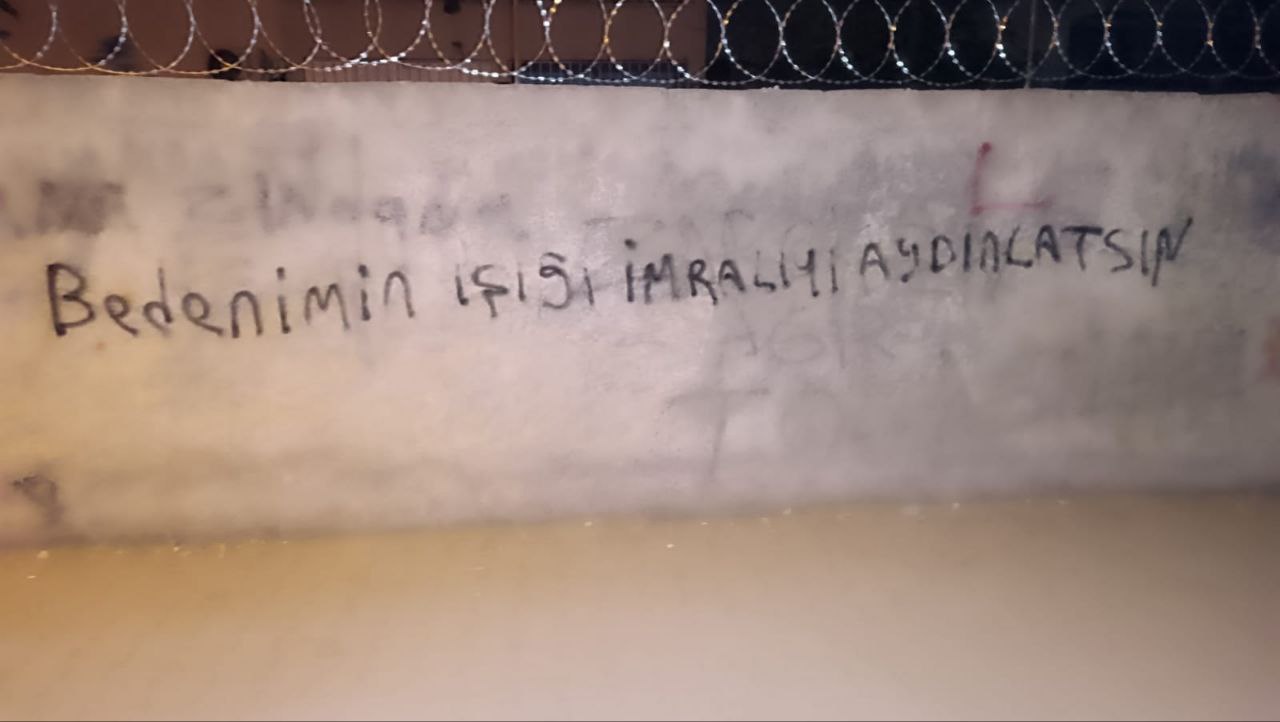 Bedenimin ışığı İMRALIYI AYDINLATSIN